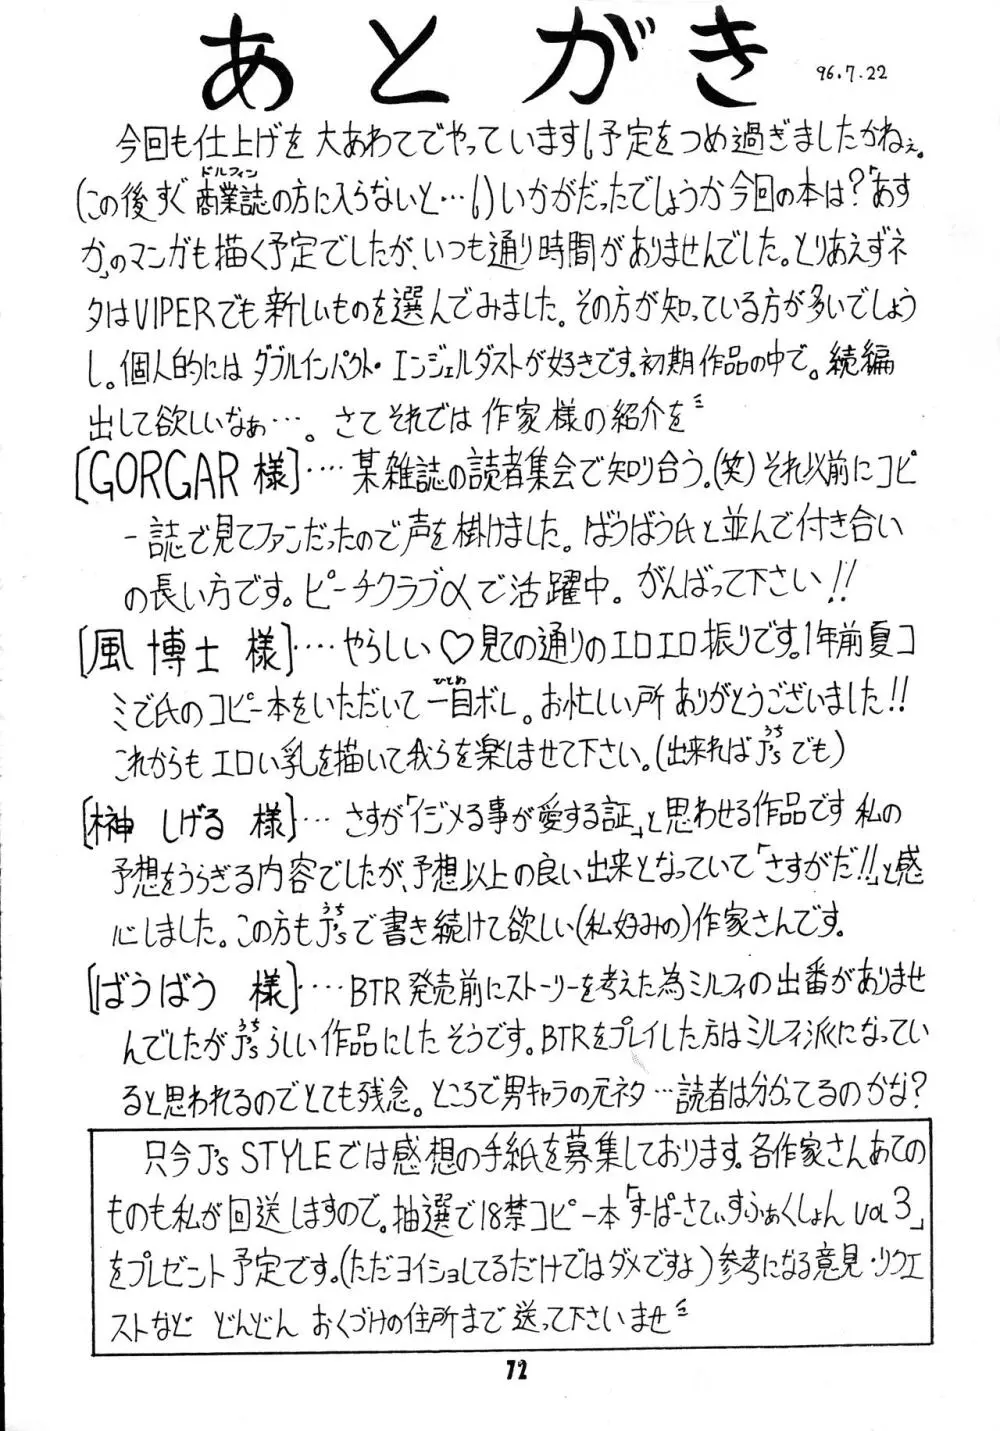 あとがき
96.7.22
今回も仕上げを大あわてでやっていますし予定をつめ過ぎましたかねぇ。
ドルフィン
(この後すぐ商業誌の方に入らないと…し)いかがだったでしょうか今回の本は?「あす
か」のマンガも描く予定でしたが、いつも通り時間がありませんでした。とりあえずネ
タはVIPERでも新しいものを選んでみました。その方が知っている方が多いでしょう
し。個人的にはダブルインパクト・エンジェルダストが好きです。初期作品の中で。続編
出して欲しいなぁ…。さてそれでは作家様の紹介を
[GORGAR様]‥‥某雑誌の読者集会で知り合う。(笑)それ以前にコピ
ー誌で見てファンだったので声を掛けました。ばうばう氏と並んで付き合い
の長い方です。ピーチクラブαで活躍中。がんばって下さい!!
[風博士様]‥‥やらしい♡見ての通りのエロエロ振りです。1年前夏コ
ひとめ
ミで氏のコピー本をいただいて一目ボレ。お忙しい所ありがとうございました!!
うち
これからもエロい乳を描いて我らを楽しませて下さい。(出来ればJ'sでも)
[榊しげる様]‥‥さすが「イジメる事が愛する証」と思わせる作品です私の
予想をうらぎる内容でしたが、予想以上の良い出来となっていて「さすがだ!!」と感
うち
心しました。この方もJ'sで書き続けて欲しい(私好みの)作家さんです。
[ばうばう様]‥‥BTR発売前にストーリーを考えた為ミルフィの出番がありませ
うち
んでしたがJ'sらしい作品にしたそうです。BTRをプレイした方はミルフィ派になってい
ると思われるのでとても残念。ところで男キャラの元ネタ…読者は分かってるのかな?
只今J's STYLEでは感想の手紙を募集しております。各作家さんあての
ものも私が回送しますので。抽選で18禁コピー本「すーぱーさてぃすふぁくしょんVol3」
をプレゼント予定です。(ただヨイショしてるだけではダメですよ)参考になる意見・リクエ
ストなどどんどんおくづけの住所まで送って下さいませ
72